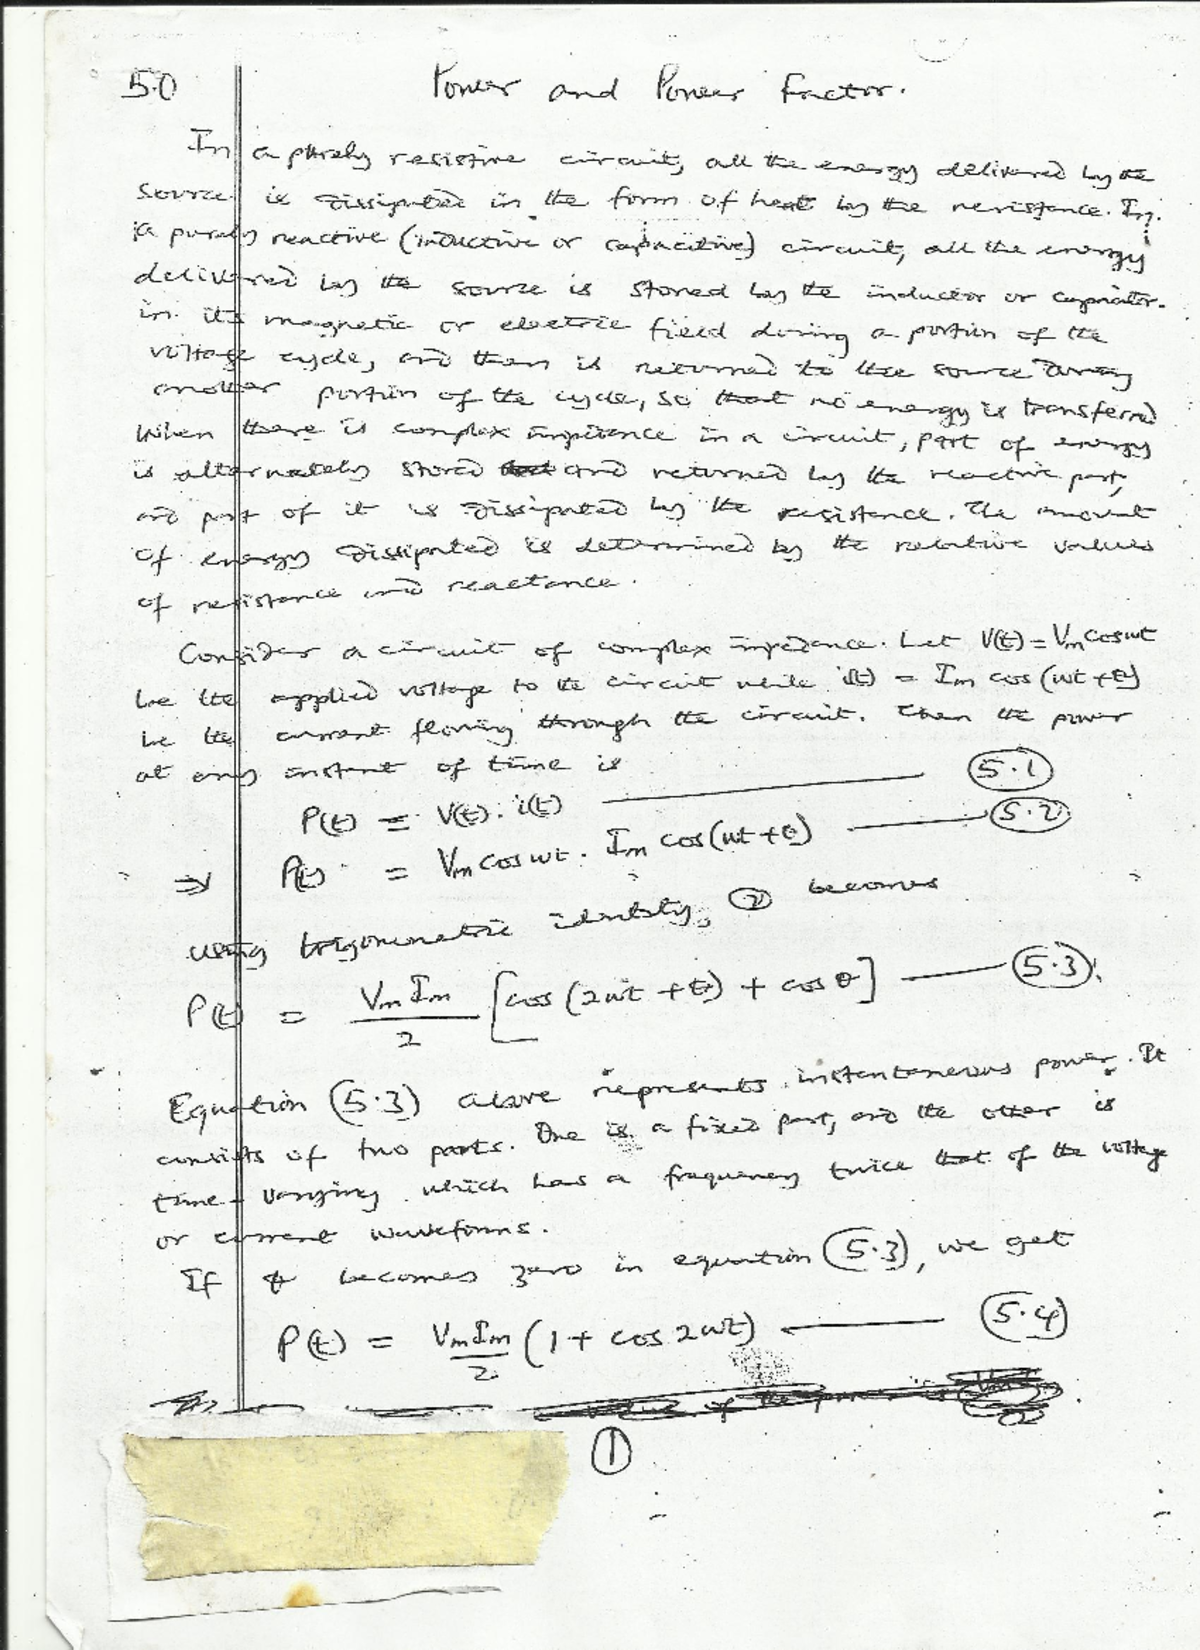 5.0 Power and Power factor.
In a purely resistive circuit, all the energy delivered by the
source is dissipated in the form of heat by the resistance. In
a purely reactive (inductive or capacitive) circuit, all the energy
delivered by the source is stored by the inductor or capacitor.
in its magnetic or electric field during a portion of the
voltage cycle, and then is returned to the source during
another portion of the cycle, so that no energy is transferred
When there is complex impedance in a circuit, part of energy
is alternately stored and returned by the reactive part,
and part of it is dissipated by the resistance. The amount
of energy dissipated is determined by the relative values
of resistance and reactance.
Consider a circuit of complex impedance. Let V(t) = Vm cos wt
be the applied voltage to the circuit while i(t) = Im cos (wt + θ)
be the current flowing through the circuit. Then the power
at any instant of time is
P(t) = V(t). i(t) 5.1
⇒ P(t) = Vm cos wt . Im cos(wt + θ) 5.2
using trigonometric identity, 2 becomes
P(t) = VmIm/2 [cos (2wt + θ) + cos θ] 5.3
Equation (5.3) above represents instantaneous power. It
consists of two parts. One is a fixed part, and the other is
time-varying which has a frequency twice that of the voltage
or current waveforms.
If θ becomes zero in equation (5.3), we get
P(t) = VmIm/2 (1 + cos 2wt) 5.4
1